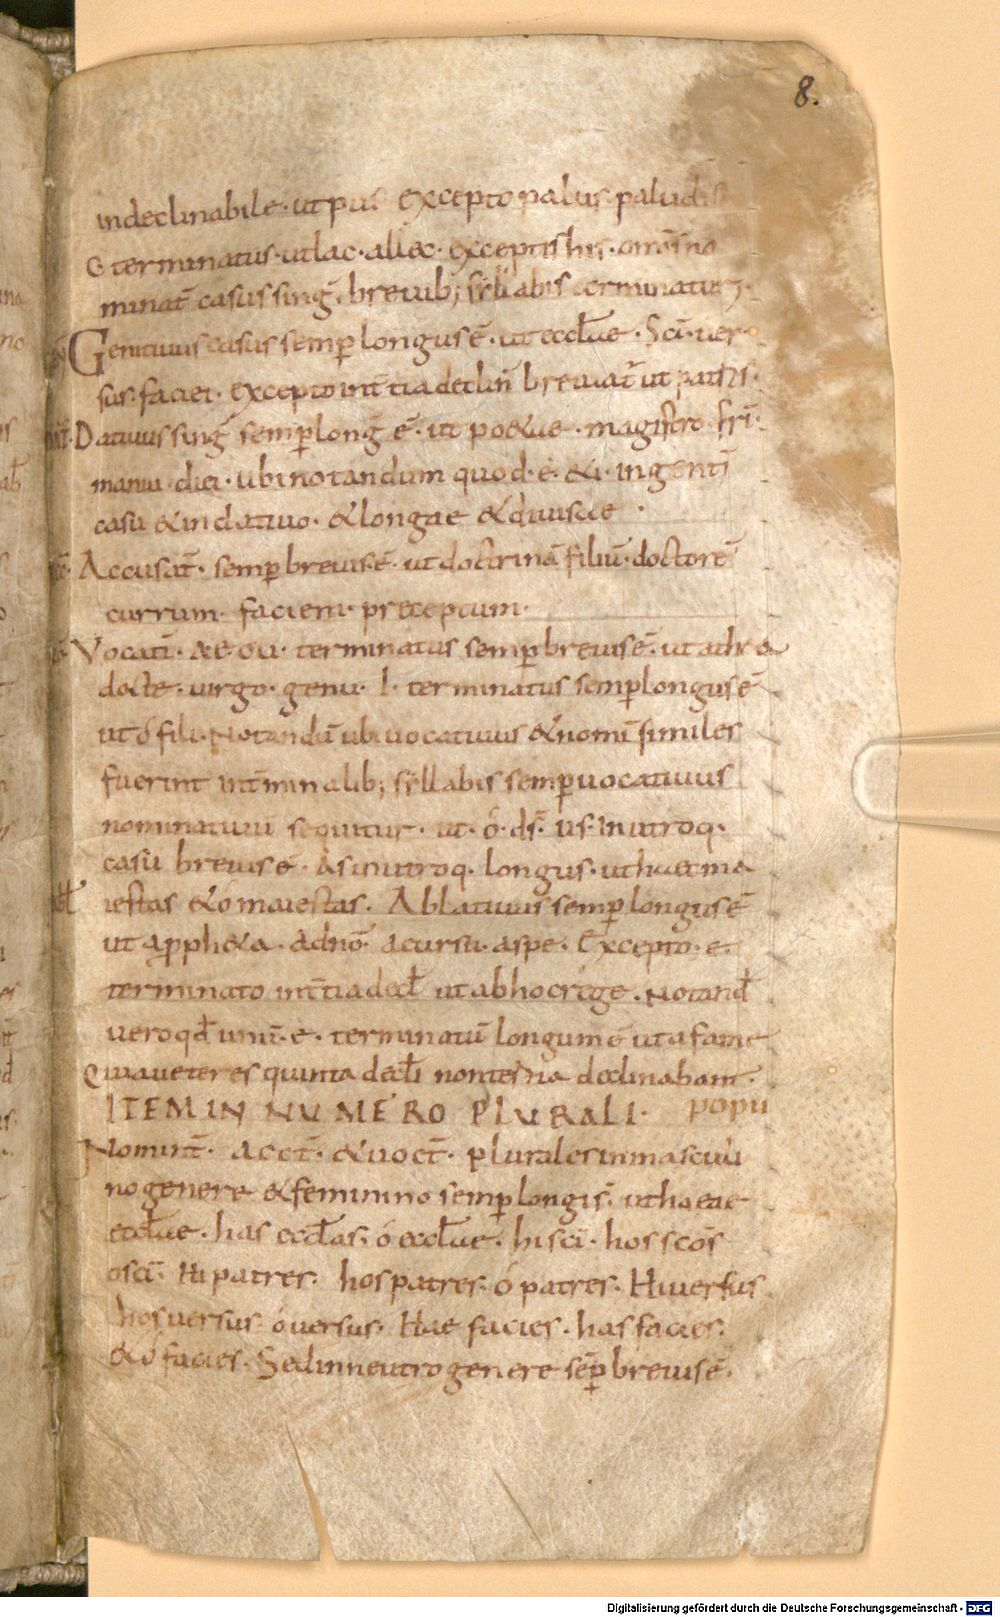 8.
indeclinabile· ut pus excepto palus· paludis
C terminatus· ut lac· allec· exceptis his· om̄s no
minat̄ casus sinḡ· breuib; syllabis terminatur
Genitiuus casus semp̄ longus ē· ut eccl̄ae· Sc̄i· uer
sus· faciei· excepto in t̄tia declin̄ breuiat̄ ut patris·
Datiuus sinḡ semp̄ lonḡ ē· ut poetae· magistro· fr̄i·
manui· diei· ubi notandum quod· e· & i· in geniti
casu & in datiuo· & longae & diuisae·
Accusat̄· semp̄ breuis· ē· ut doctrinā filiū· doctorē
currum· faciem· preceptum·
Vocati· A e o u· terminatus semp̄ breuis ē· ut athra
docte· uirgo· genu· I· terminatus semp̄ longus ē
ut ó fili· Notandū ubi uocatiuus & nomī similes
fuerint in t̄minalib; syllabis semp̄ uocatiuus
nominatiuū sequitur· ut· ó· ds̄· us· in utroq·
casu breuis ē· As in utroq· longus· ut haec ma
iestas & ó maiestas· Ablatiuus semp̄ longus ē
ut a pph&a· a dn̄o· a cursu· a spe· Excepto· e·
terminato in t̄tia decl̄ ut ab hoc rege· Notand̄
uero qd̄ unū· e· terminatū longum ē ut a fame
Quia ueteres quinta decl̄i non tertia declinabant·
ITEM IN NUMERO PLURALI· popu
Nomint̄· acct̄· & uoct̄· plurales in masculi
no genere & feminino semp̄ longi s̄· ut hae
eccl̄ae· has eccl̄as· ó eccl̄ae· hi sc̄i· hos sc̄os
o sc̄i· Hi patres· hos patres· ó patres· Hi uersus
hos uersus ó uersus· Hae facies· has facies·
& ó facies· Sed in neutro genere sēp̄ breuis ē·
Digitalisierung gefördert durch die Deutsche Forschungsgemeinschaft - DFG